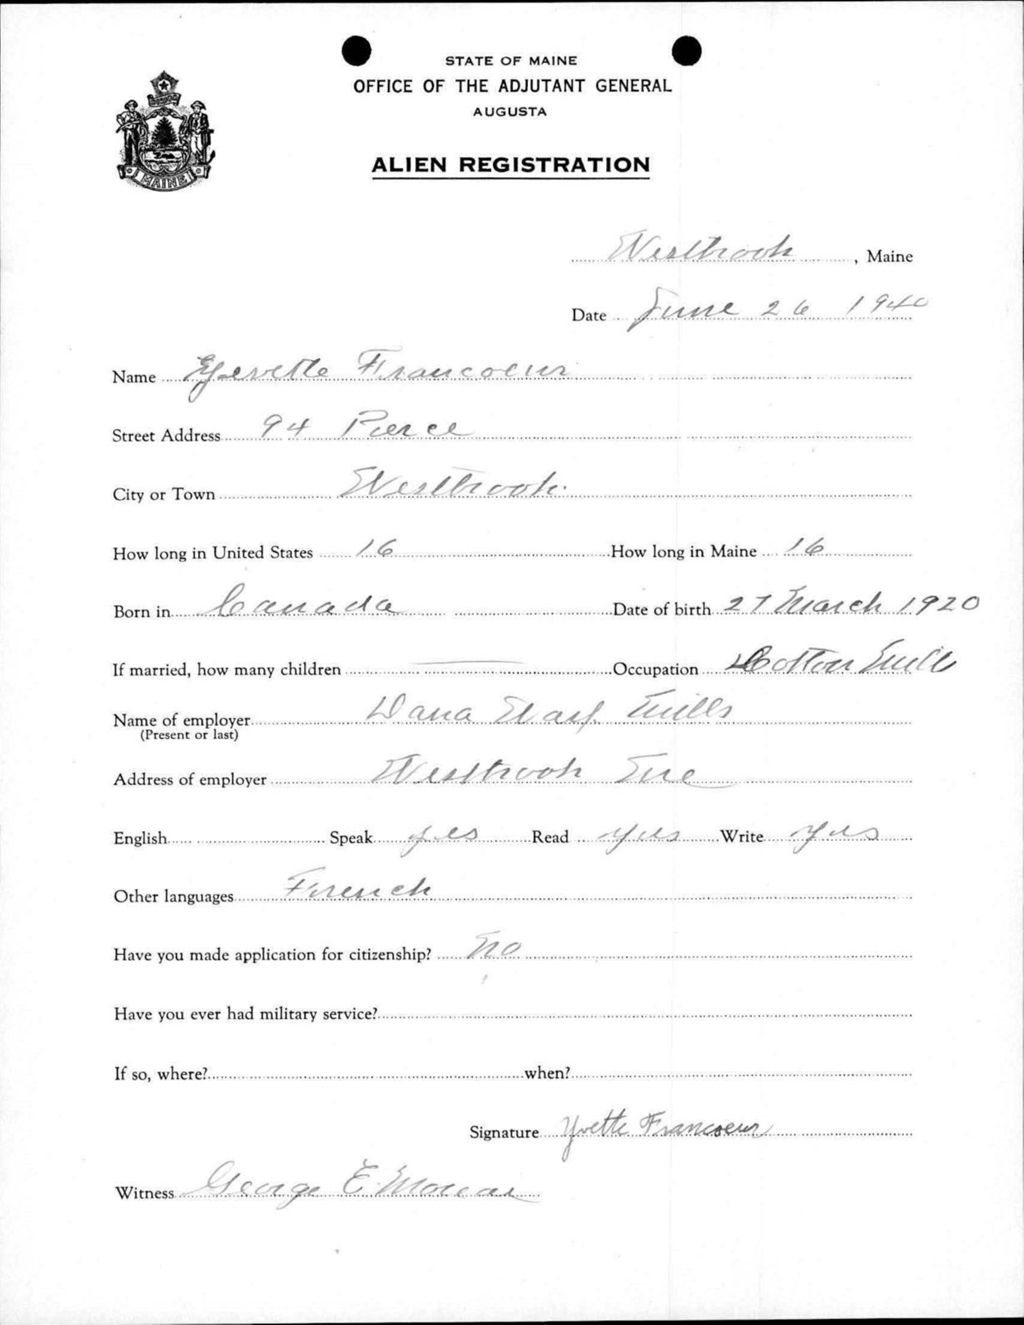 STATE OF MAINE
OFFICE OF THE ADJUTANT GENERAL
AUGUSTA
ALIEN REGISTRATION
MAINE
Westbrook, Maine
Date June 26 1940
Name Yvette Francoeur
Street Address 94 Pierce
City or Town Westbrook.
How long in United States 16 How long in Maine 16
Born in Canada Date of birth 27 March 1920
If married, how many children — Occupation Cotton Mill
Name of employer Dana Warp Mills
(Present or last)
Address of employer Westbrook Me
English Speak yes Read yes Write yes
Other languages French
Have you made application for citizenship? No
Have you ever had military service?
If so, where? when?
Signature Yvette Francoeur
Witness George E.